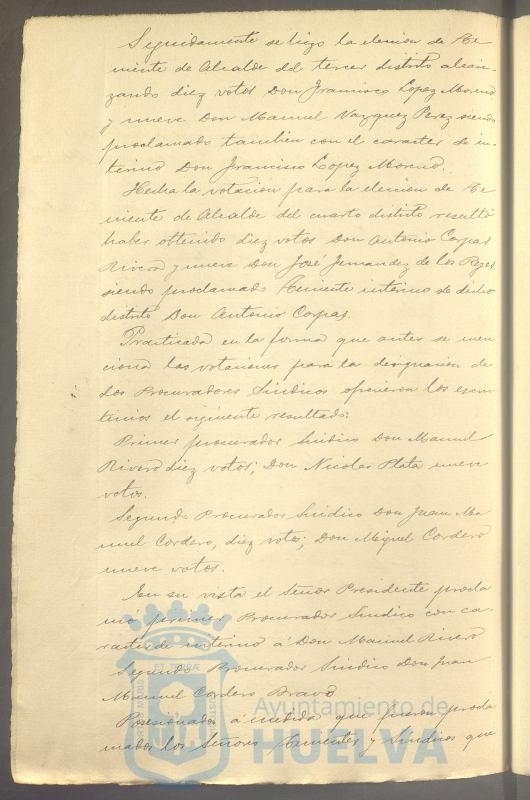 Seguidamente se hizo la eleccion de Te
niente de Alcalde del tercer distrito alcan-
zando diez votos Don Francisco Lopez Moreno
y nueve Don Manuel Vazquez Perez siendo
proclamado tambien con el caracter de in-
terino Don Francisco Lopez Moreno.
Hecha la votacion para la eleccion de Te
niente de Alcalde del cuarto distrito resultó
haber obtenido diez votos Don Antonio Corpas
Rivera y nueve Don José Fernandez de los Reyes
siendo proclamado Teniente interino de dicho
distrito Don Antonio Corpas.
Practicada en la forma que antes se men
ciona las votaciones para la designacion de
dos Procuradores Sindicos ofrecieron los escru
tinios el siguiente resultado:
Primer procurador Sindico Don Manuel
Rivero diez votos; Don Nicolas Plata nueve
votos.
Segundo Procurador Sindico Don Juan Ma-
nuel Cordero, diez votos; Don Miguel Cordero
nueve votos.
En su vista el señor Presidente procla
mó primer Procurador Sindico con ca-
racter de interino á Don Manuel Rivero
Segundo Procurador Sindico Don Juan
Manuel Cordero Bravo
Posesionados á medida que fueron procla
mados los Señores Tenientes y Sindicos que
ET TERRÆ
Ayuntamiento de
HUELVA